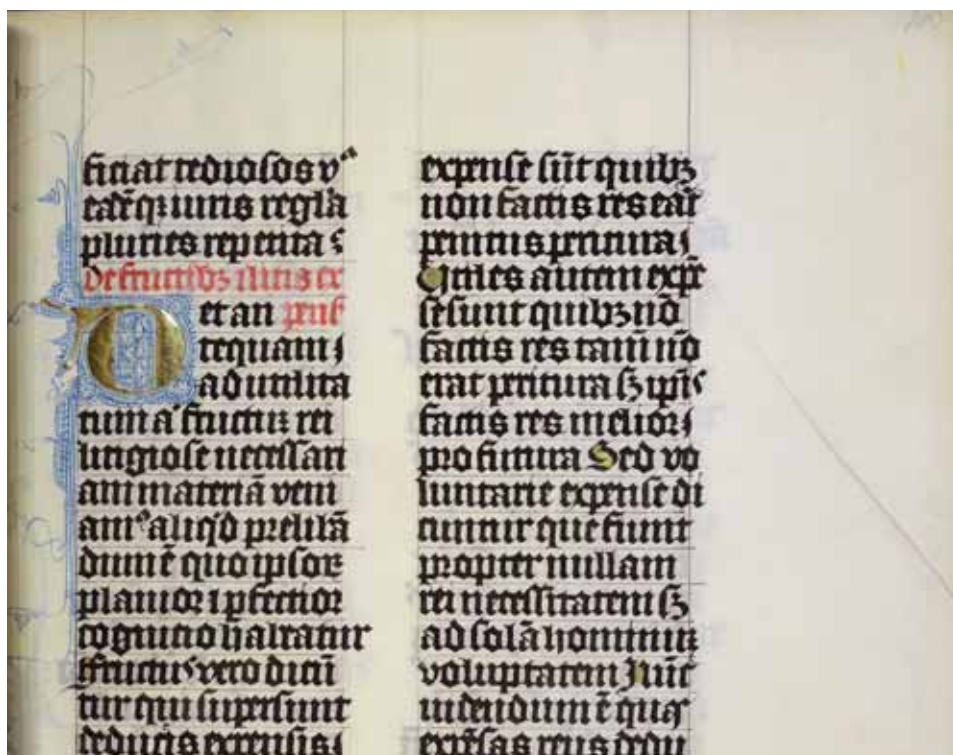 ficiat tediosos vᵃ
eadē iuris regla
pluries repetita
De fructibȝ litis ex
et an pens
tequam
ad utilita
tum a fructuū rei
litigiose necessari
am materiā veni
am aliqd prelibā
dum ē quo ipsoꝝ
planior ⁊ pfectior
cognitio habeatur
fructus vero dicū
tur qui supersunt
deductis expensis
expense sūt quibȝ
non factis res eāt
penitus peritura
Utiles autem expē
se sunt quibȝ nō
factis res tam̄ nō
erat peritura sȝ ip̄is
factis res melior
profutura Sed vo
luntarie expense di
cuntur que fiunt
propter nullam
rei necessitatem sȝ
ad solā hominuȝ
voluptatem
uidendum ē quas
expēsas reus dedu